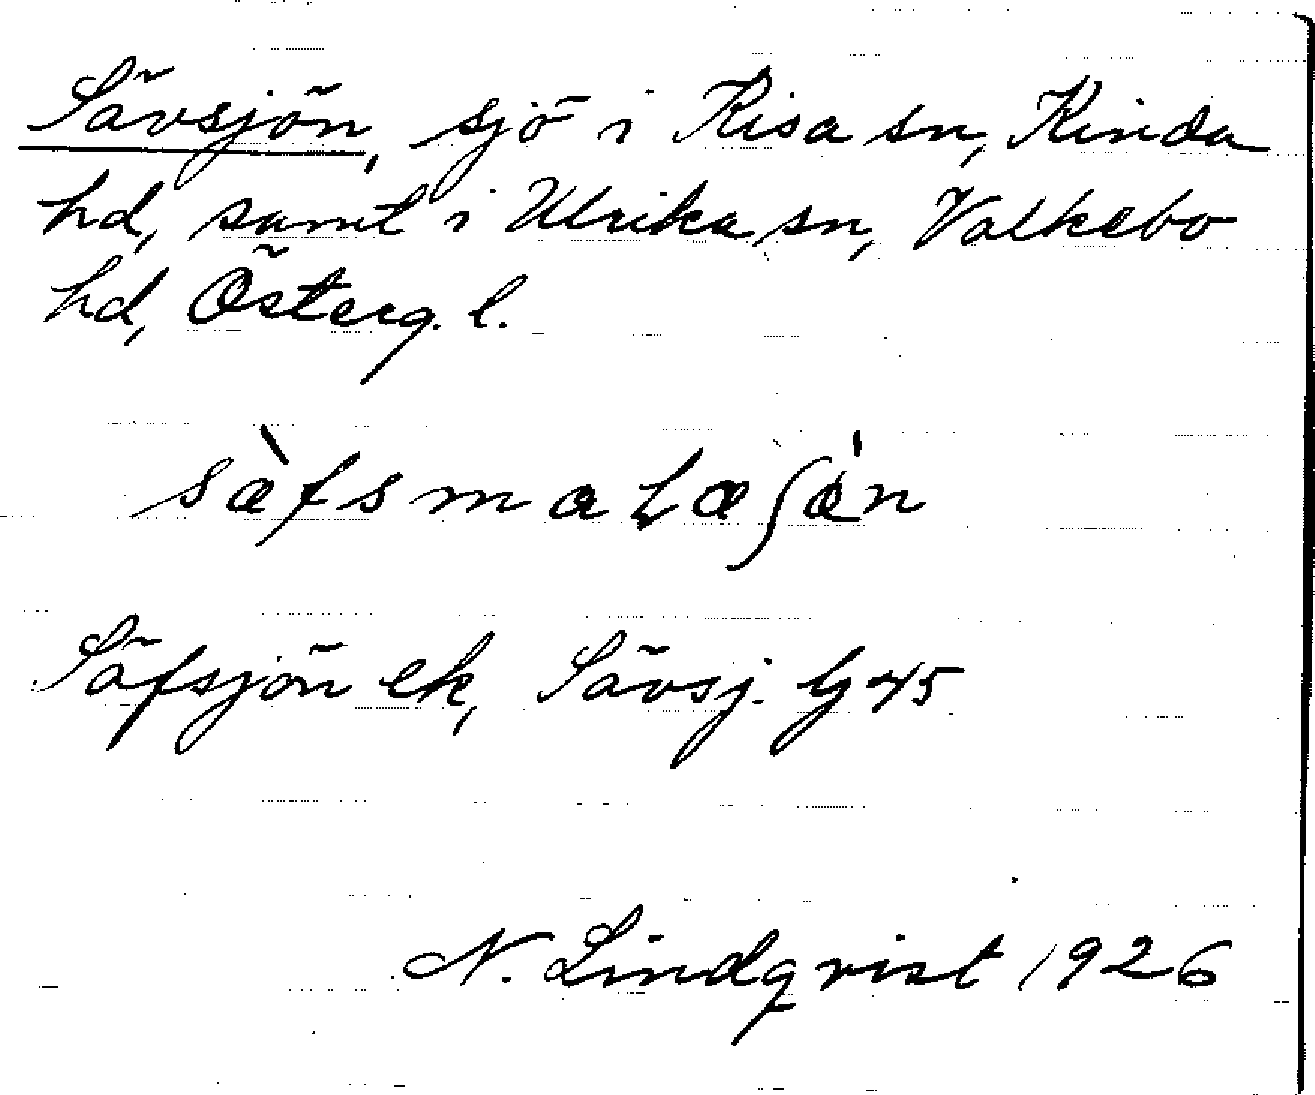 Sävsjön, sjö i Kisa sn, Kinda
hd, samt i Ulrika sn, Valkebo
hd, Österg. l.
Säfsjön ek, Sävsj. G 45
N. Lindqvist 1926